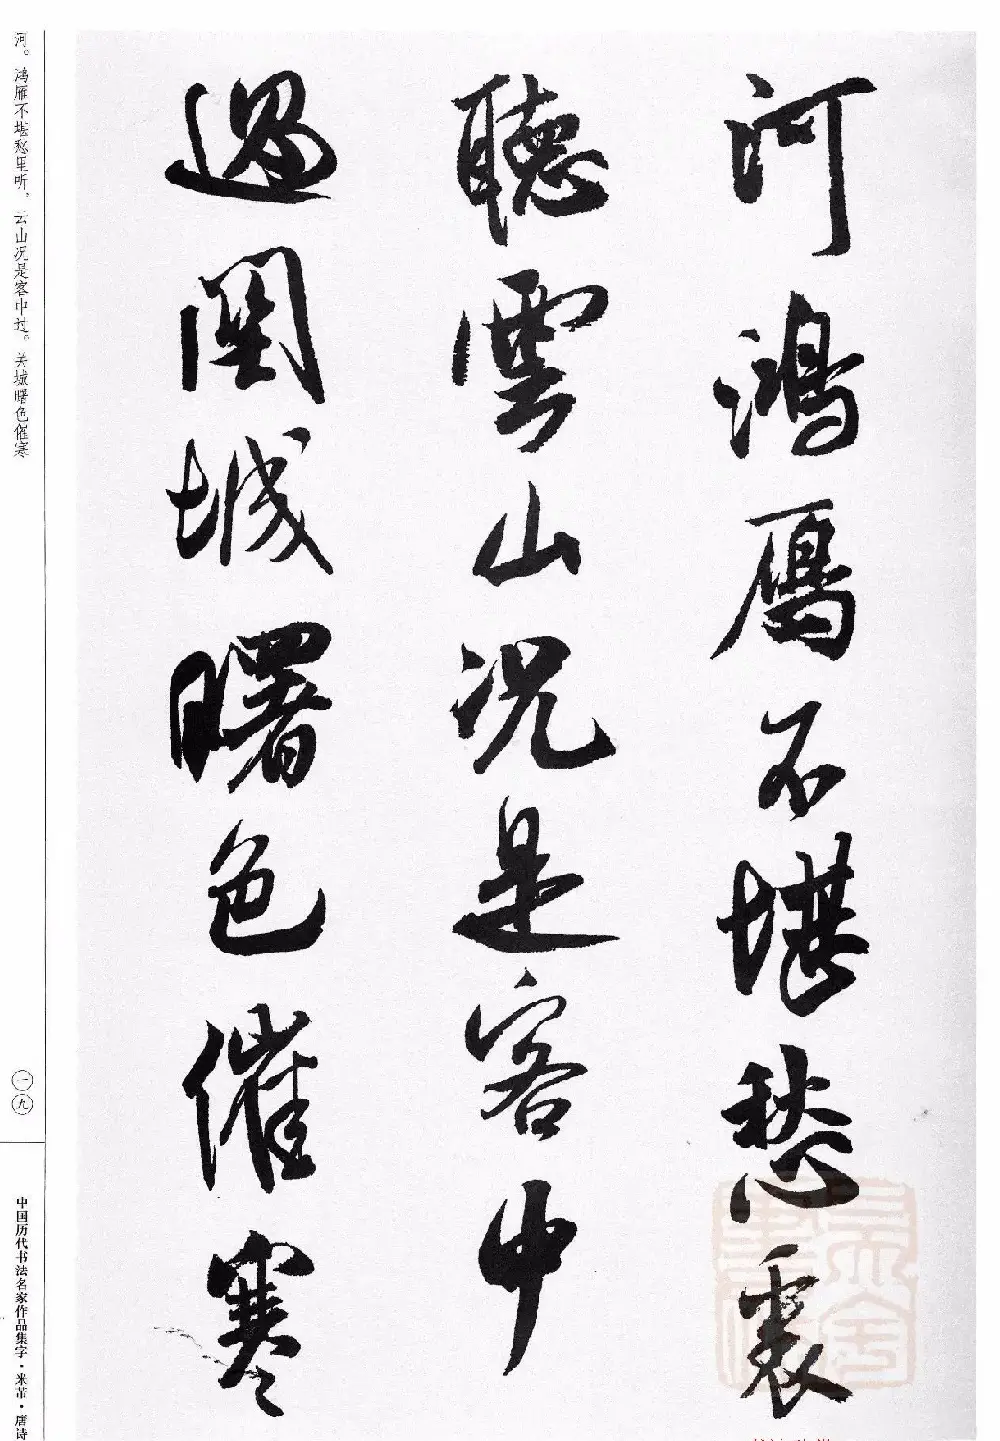 河鴻鴈不堪愁裏
聽雲山況是客中
過關城曙色催寒
河。鸿雁不堪愁里听，云山况是客中过。关城曙色催寒
一九
中国历代书法名家作品集字·米芾·唐诗